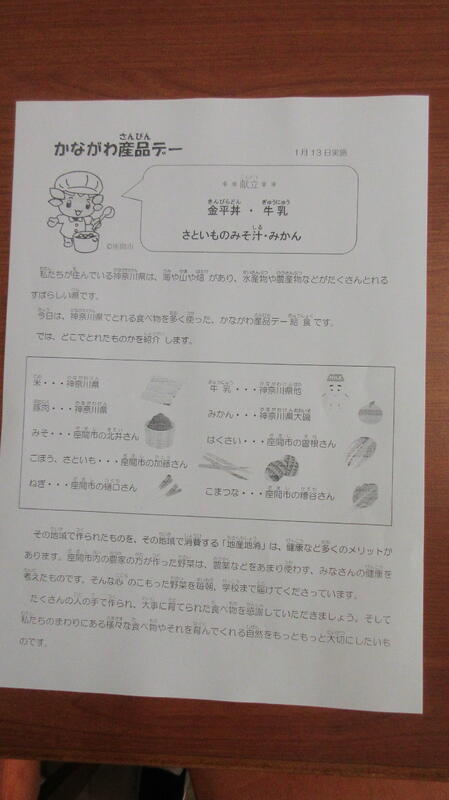 かながわ産品デー
1月13日実施
＊＊献立＊＊
金平丼・牛乳
さといものみそ汁・みかん
©座間市
私たちが住んでいる神奈川県は、海や山や畑があり、水産物や農産物などがたくさんとれる
すばらしい県です。
今日は、神奈川県でとれる食べ物を多く使った、かながわ産品デー給食です。
では、どこでとれたものかを紹介します。
米・・・神奈川県
豚肉・・・神奈川県
みそ・・・座間市の北井さん
ごぼう、さといも・・・座間市の加藤さん
ねぎ・・・座間市の樋口さん
牛乳・・・神奈川県他
みかん・・・神奈川県大磯
はくさい・・・座間市の曽根さん
こまつな・・・座間市の糟谷さん
その地域で作られたものを、その地域で消費する「地産地消」は、健康など多くのメリットが
あります。座間市内の農家の方が作った野菜は、農薬などをあまり使わず、みなさんの健康を
考えたものです。そんな心のこもった野菜を毎朝、学校まで届けてくださっています。
たくさんの人の手で作られ、大事に育てられた食べ物を感謝していただきましょう。そして
私たちのまわりにある様々な食べ物やそれを育んでくれる自然をもっともっと大切にしたいも
のです。